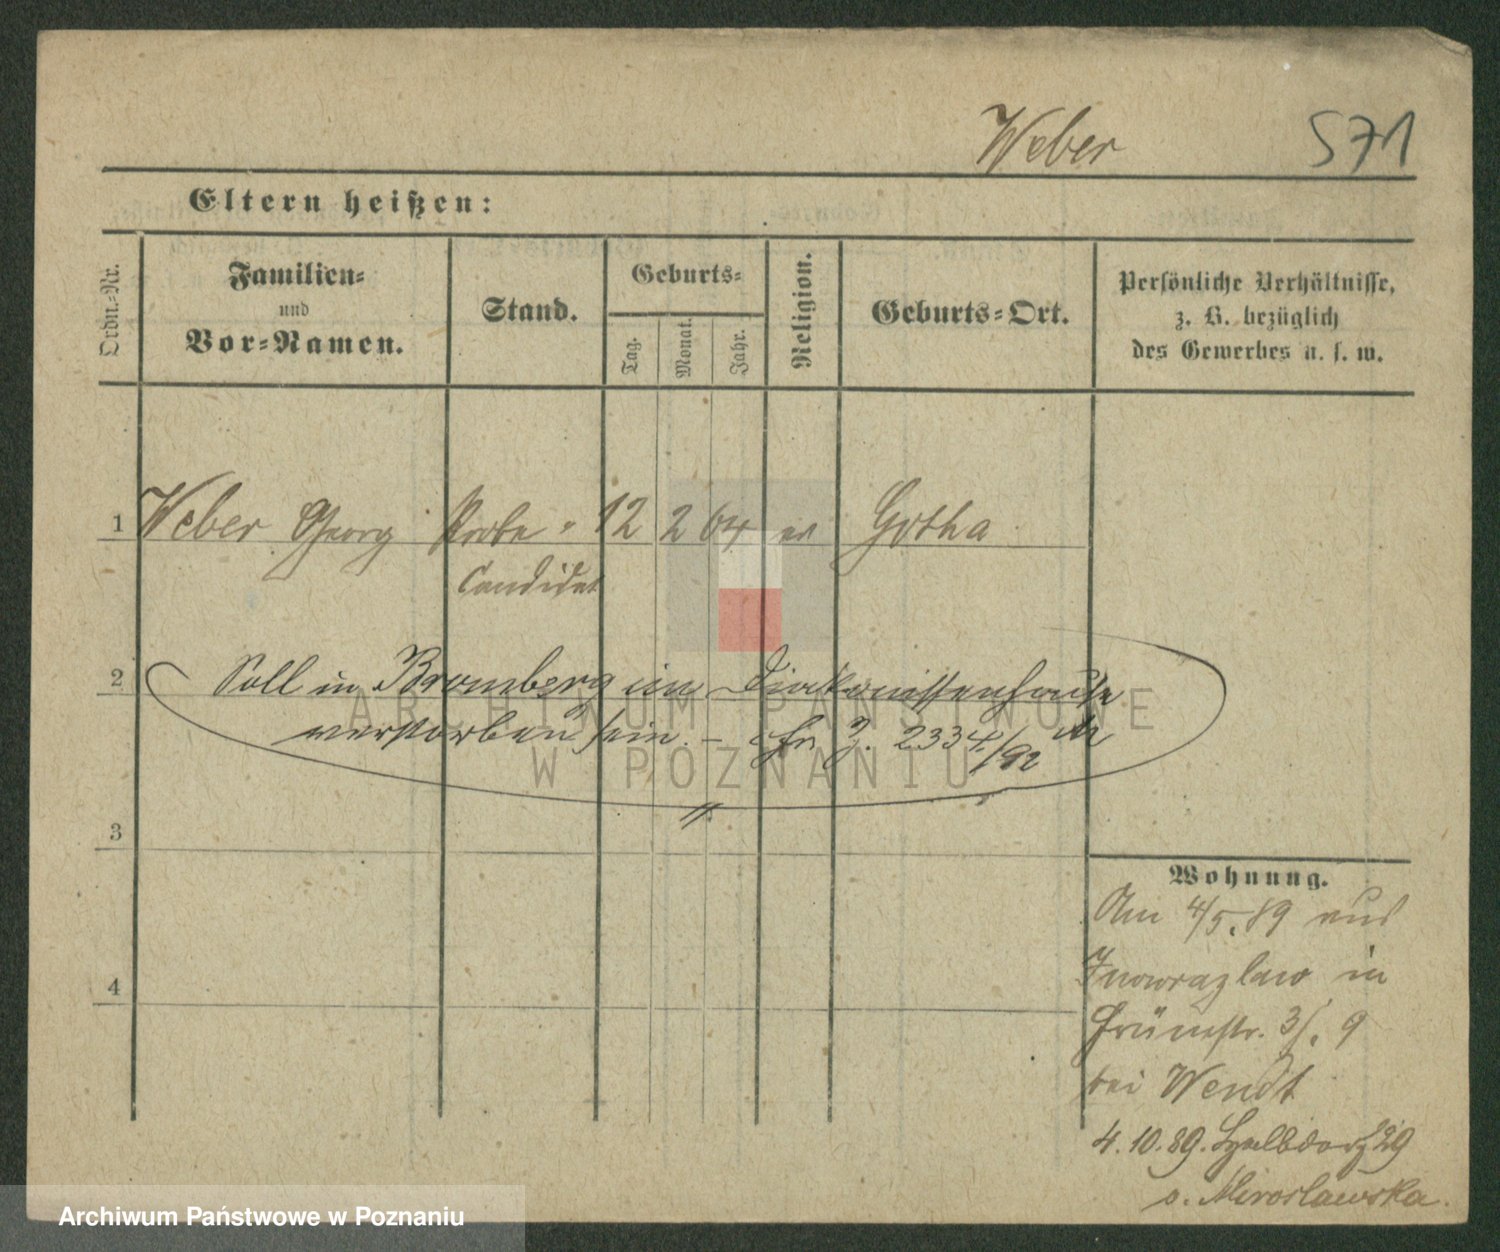 Weber 571
Eltern heißen:
Ordn.-Nr.
Familien-
und
Vor-Namen.
Stand.
Geburts-
Tag.
Monat.
Jahr.
Religion.
Geburts-Ort.
Persönliche Verhältnisse,
z. B. bezüglich
des Gewerbes u. s. w.
1 Weber Georg Probe- 12 2 64 ev Gotha
Candidat
2 Soll in Bromberg im Diakonissenhause
verstorben sein. - cfr J. 2334/92
3
4
Wohnung.
Am 4/5.89 aus
Inowrazlaw in
Grünestr. 3/. 9
bei Wendt
4.10.89. 29
b. Miroslawska.
ARCHIWUM PAŃSTWOWE
W POZNANIU
Archiwum Państwowe w Poznaniu